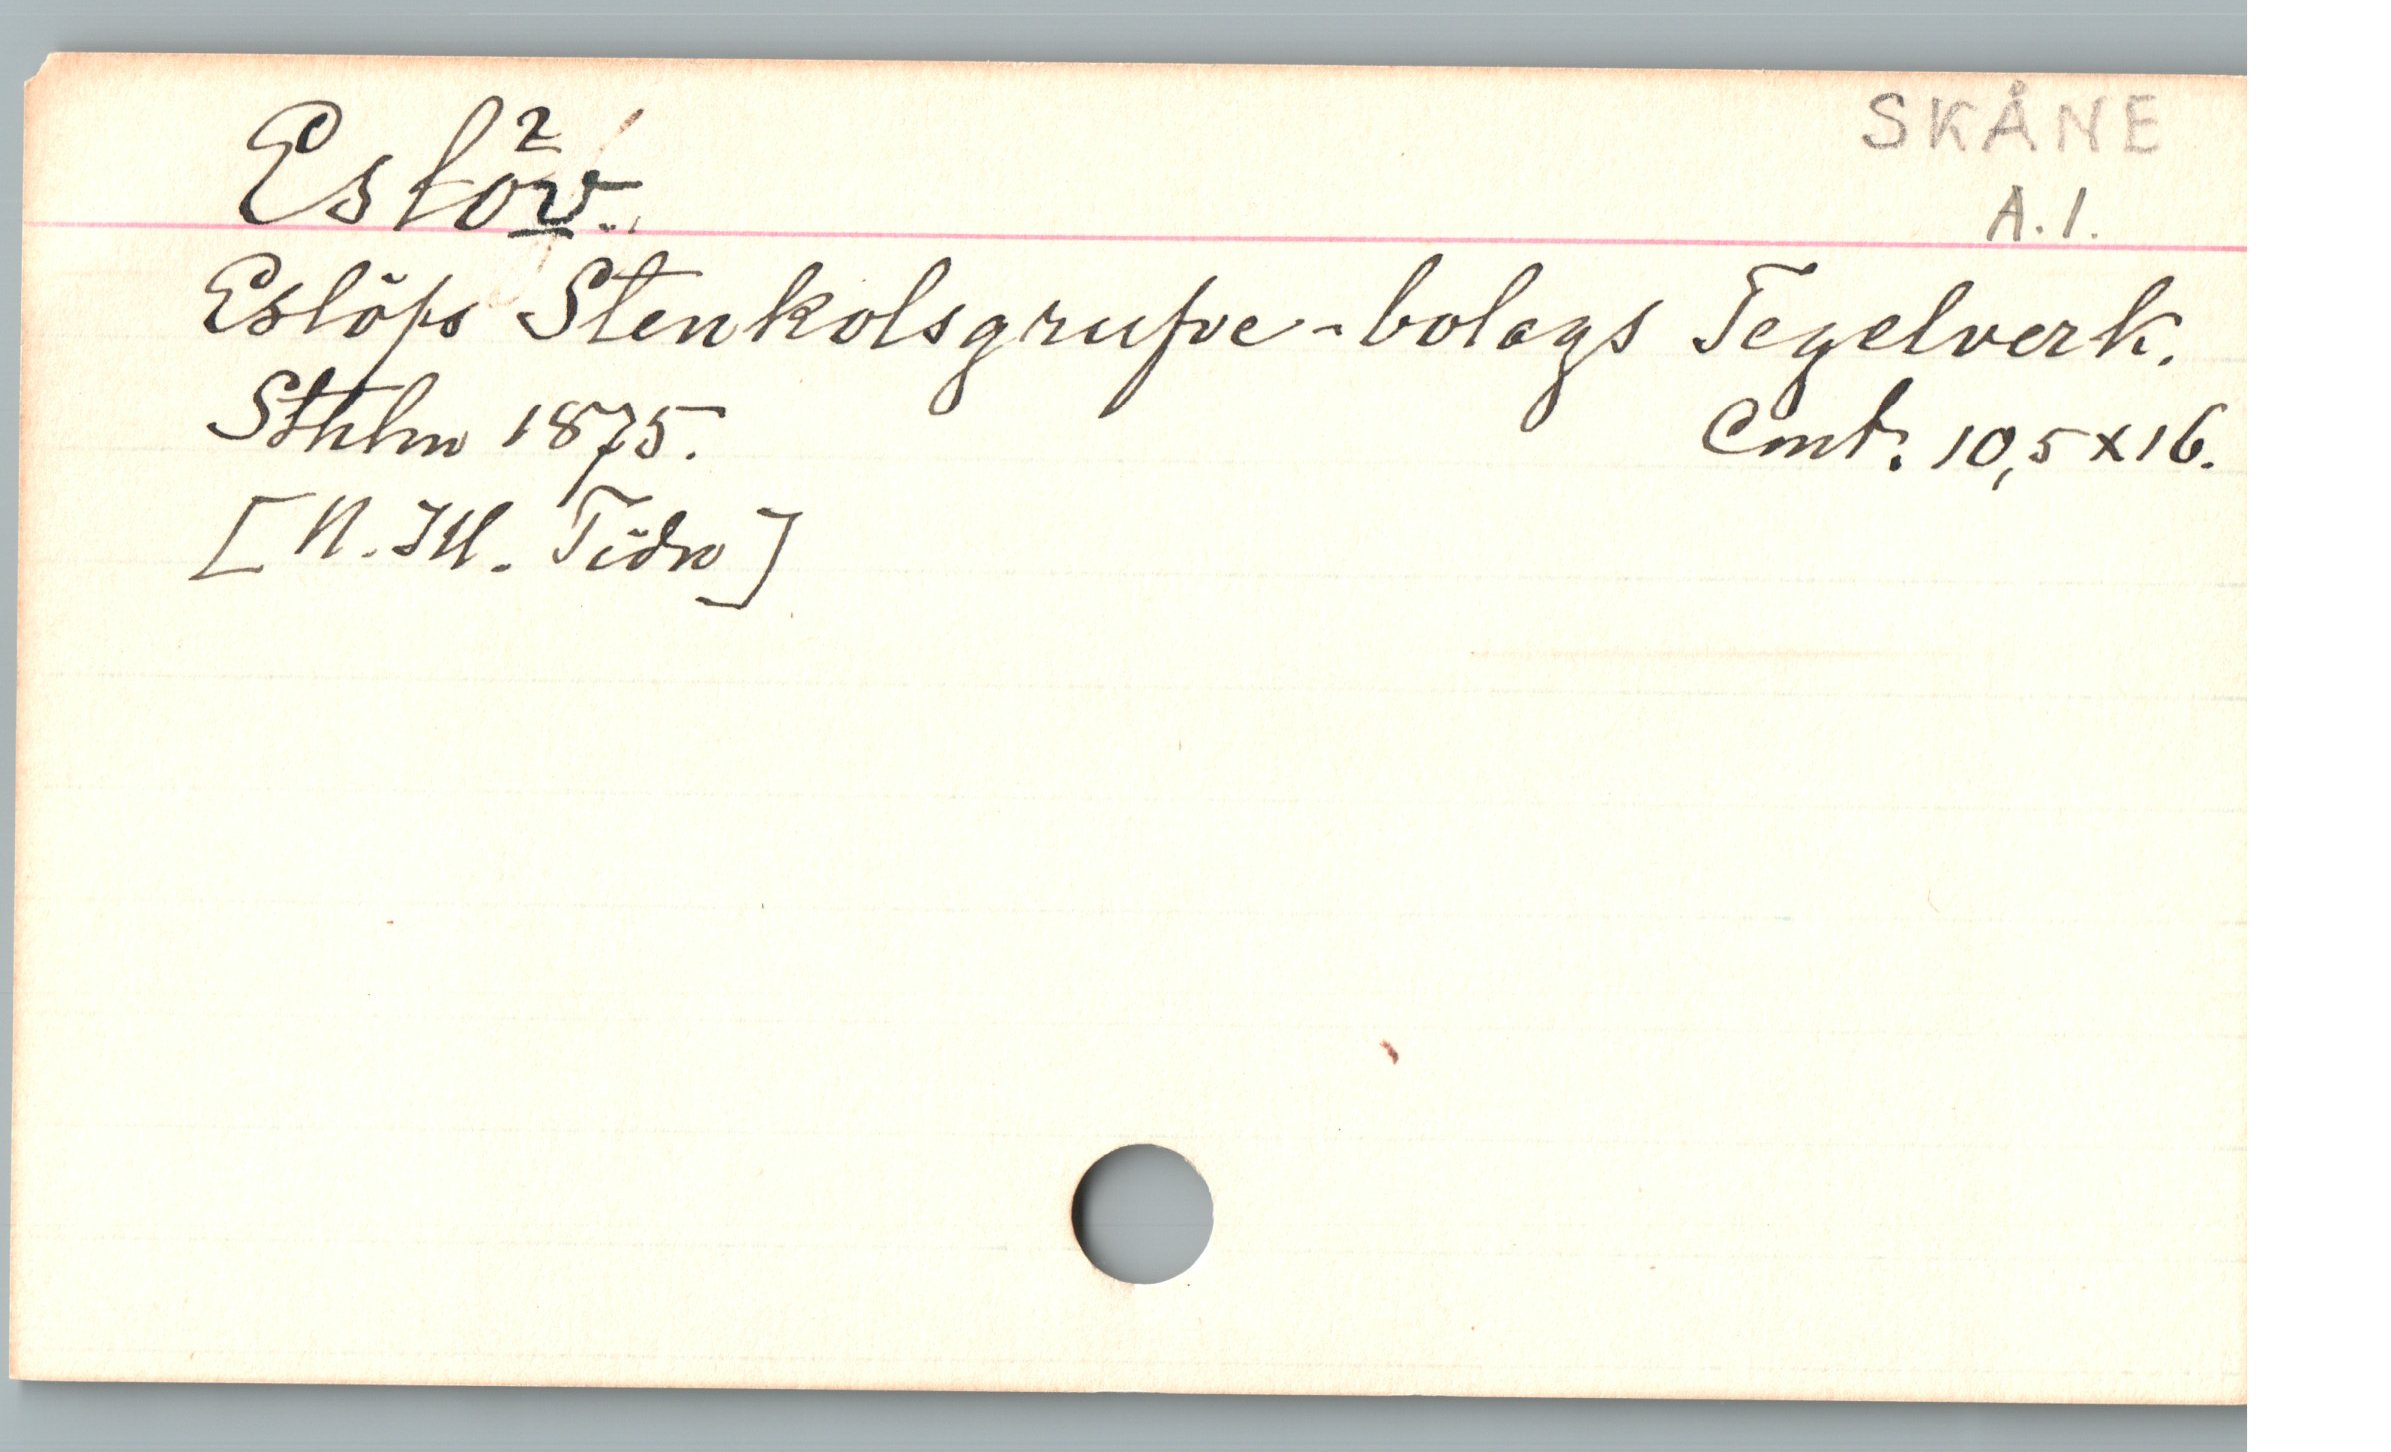 Eslöv.
SKÅNE
A.1.
Eslöfs Stenkolsgrufve-bolags Tegelverk.
Sthlm 1875. Cmt. 10,5 x 16.
[N. M. Tidn]